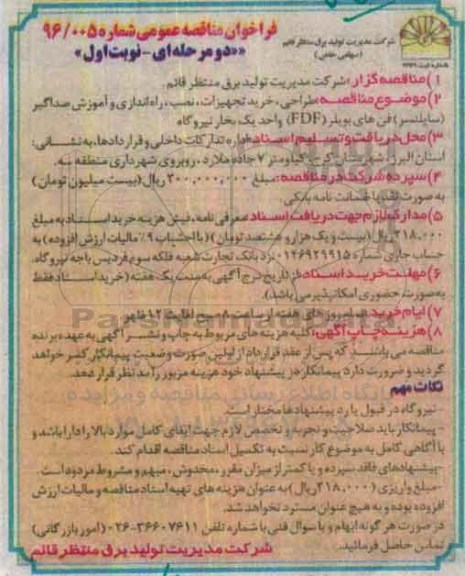 فراخوان مناقصه عمومی شماره ۹۶/۰۰۵
««دو مرحله‌ای - نوبت اول»
شرکت مدیریت تولید برق منتظر قائم
(سهامی خاص)
۱) مناقصه گزار: شرکت مدیریت تولید برق منتظر قائم
۲) موضوع مناقصه: طراحی، خرید تجهیزات، نصب، راه‌اندازی و آموزش صداگیر
(سایلنسر) فن های بویلر (FDF) واحد یک بخار نیروگاه
۳) محل دریافت و تسلیم اسناد: اداره تدارکات داخلی و قراردادها، به نشانی:
استان البرز، شهرستان کرج، کیلومتر ۷ جاده ملارد، روبروی شهرداری منطقه سه.
۴) سپرده شرکت در مناقصه: مبلغ ۲۰۰,۰۰۰,۰۰۰ ریال (بیست میلیون تومان)
به صورت نقد یا ضمانت نامه بانکی
۵) مدارک لازم جهت دریافت اسناد: معرفی نامه، فیش هزینه خرید اسناد به مبلغ
۲۱۸,۰۰۰ ریال (بیست و یک هزار و هشتصد تومان) (با احتساب ۹٪ مالیات ارزش افزوده) به
حساب جاری شماره ۰۱۲۶۹۲۹۹۱۵ نزد بانک تجارت شعبه فلکه سوم فردیس با جه نیروگاه.
۶) مهلت خرید اسناد: از تاریخ درج آگهی به مدت یک هفته (خرید اسناد فقط
به صورت حضوری امکانپذیر می باشد).
۷) ایام خرید: همه روز های هفته از ساعت ۸ صبح لغایت ۱۲ ظهر
۸) هزینه چاپ آگهی: کلیه هزینه های مربوط به چاپ و نشر آگهی به عهده برنده
مناقصه می باشد که پس از عقد قرارداد از اولین صورت وضعیت پیمانکار کسر خواهد
گردید و ضرورت دارد پیمانکار در پیشنهاد خود هزینه مزبور را مد نظر قرار دهد.
نکات مهم
- نیروگاه در قبول یا رد پیشنهادها مختار است.
- پیمانکار باید صلاحیت و تجربه و تخصص لازم جهت ایفای کامل موارد بالا را دارا باشد و
با آگاهی کامل به موضوع کار نسبت به تکمیل اسناد مناقصه اقدام کند.
- پیشنهادهای فاقد سپرده و یا کمتر از میزان مقرر، مخدوش، مبهم و مشروط مردود است.
- مبلغ واریزی (۲۱۸,۰۰۰ ریال) به عنوان هزینه های تهیه اسناد مناقصه و مالیات ارزش
افزوده بوده و به هیچ عنوان مسترد نخواهد شد.
در صورت هر گونه ابهام و یا سوال فنی با شماره تلفن ۳۶۶۰۷۶۱۱-۰۲۶ (امور بازرگانی)
تماس حاصل فرمائید.
شرکت مدیریت تولید برق منتظر قائم